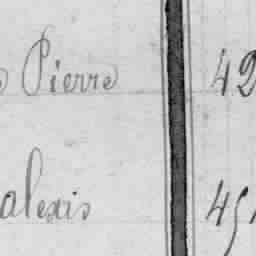 Pierre 42
alexis 45